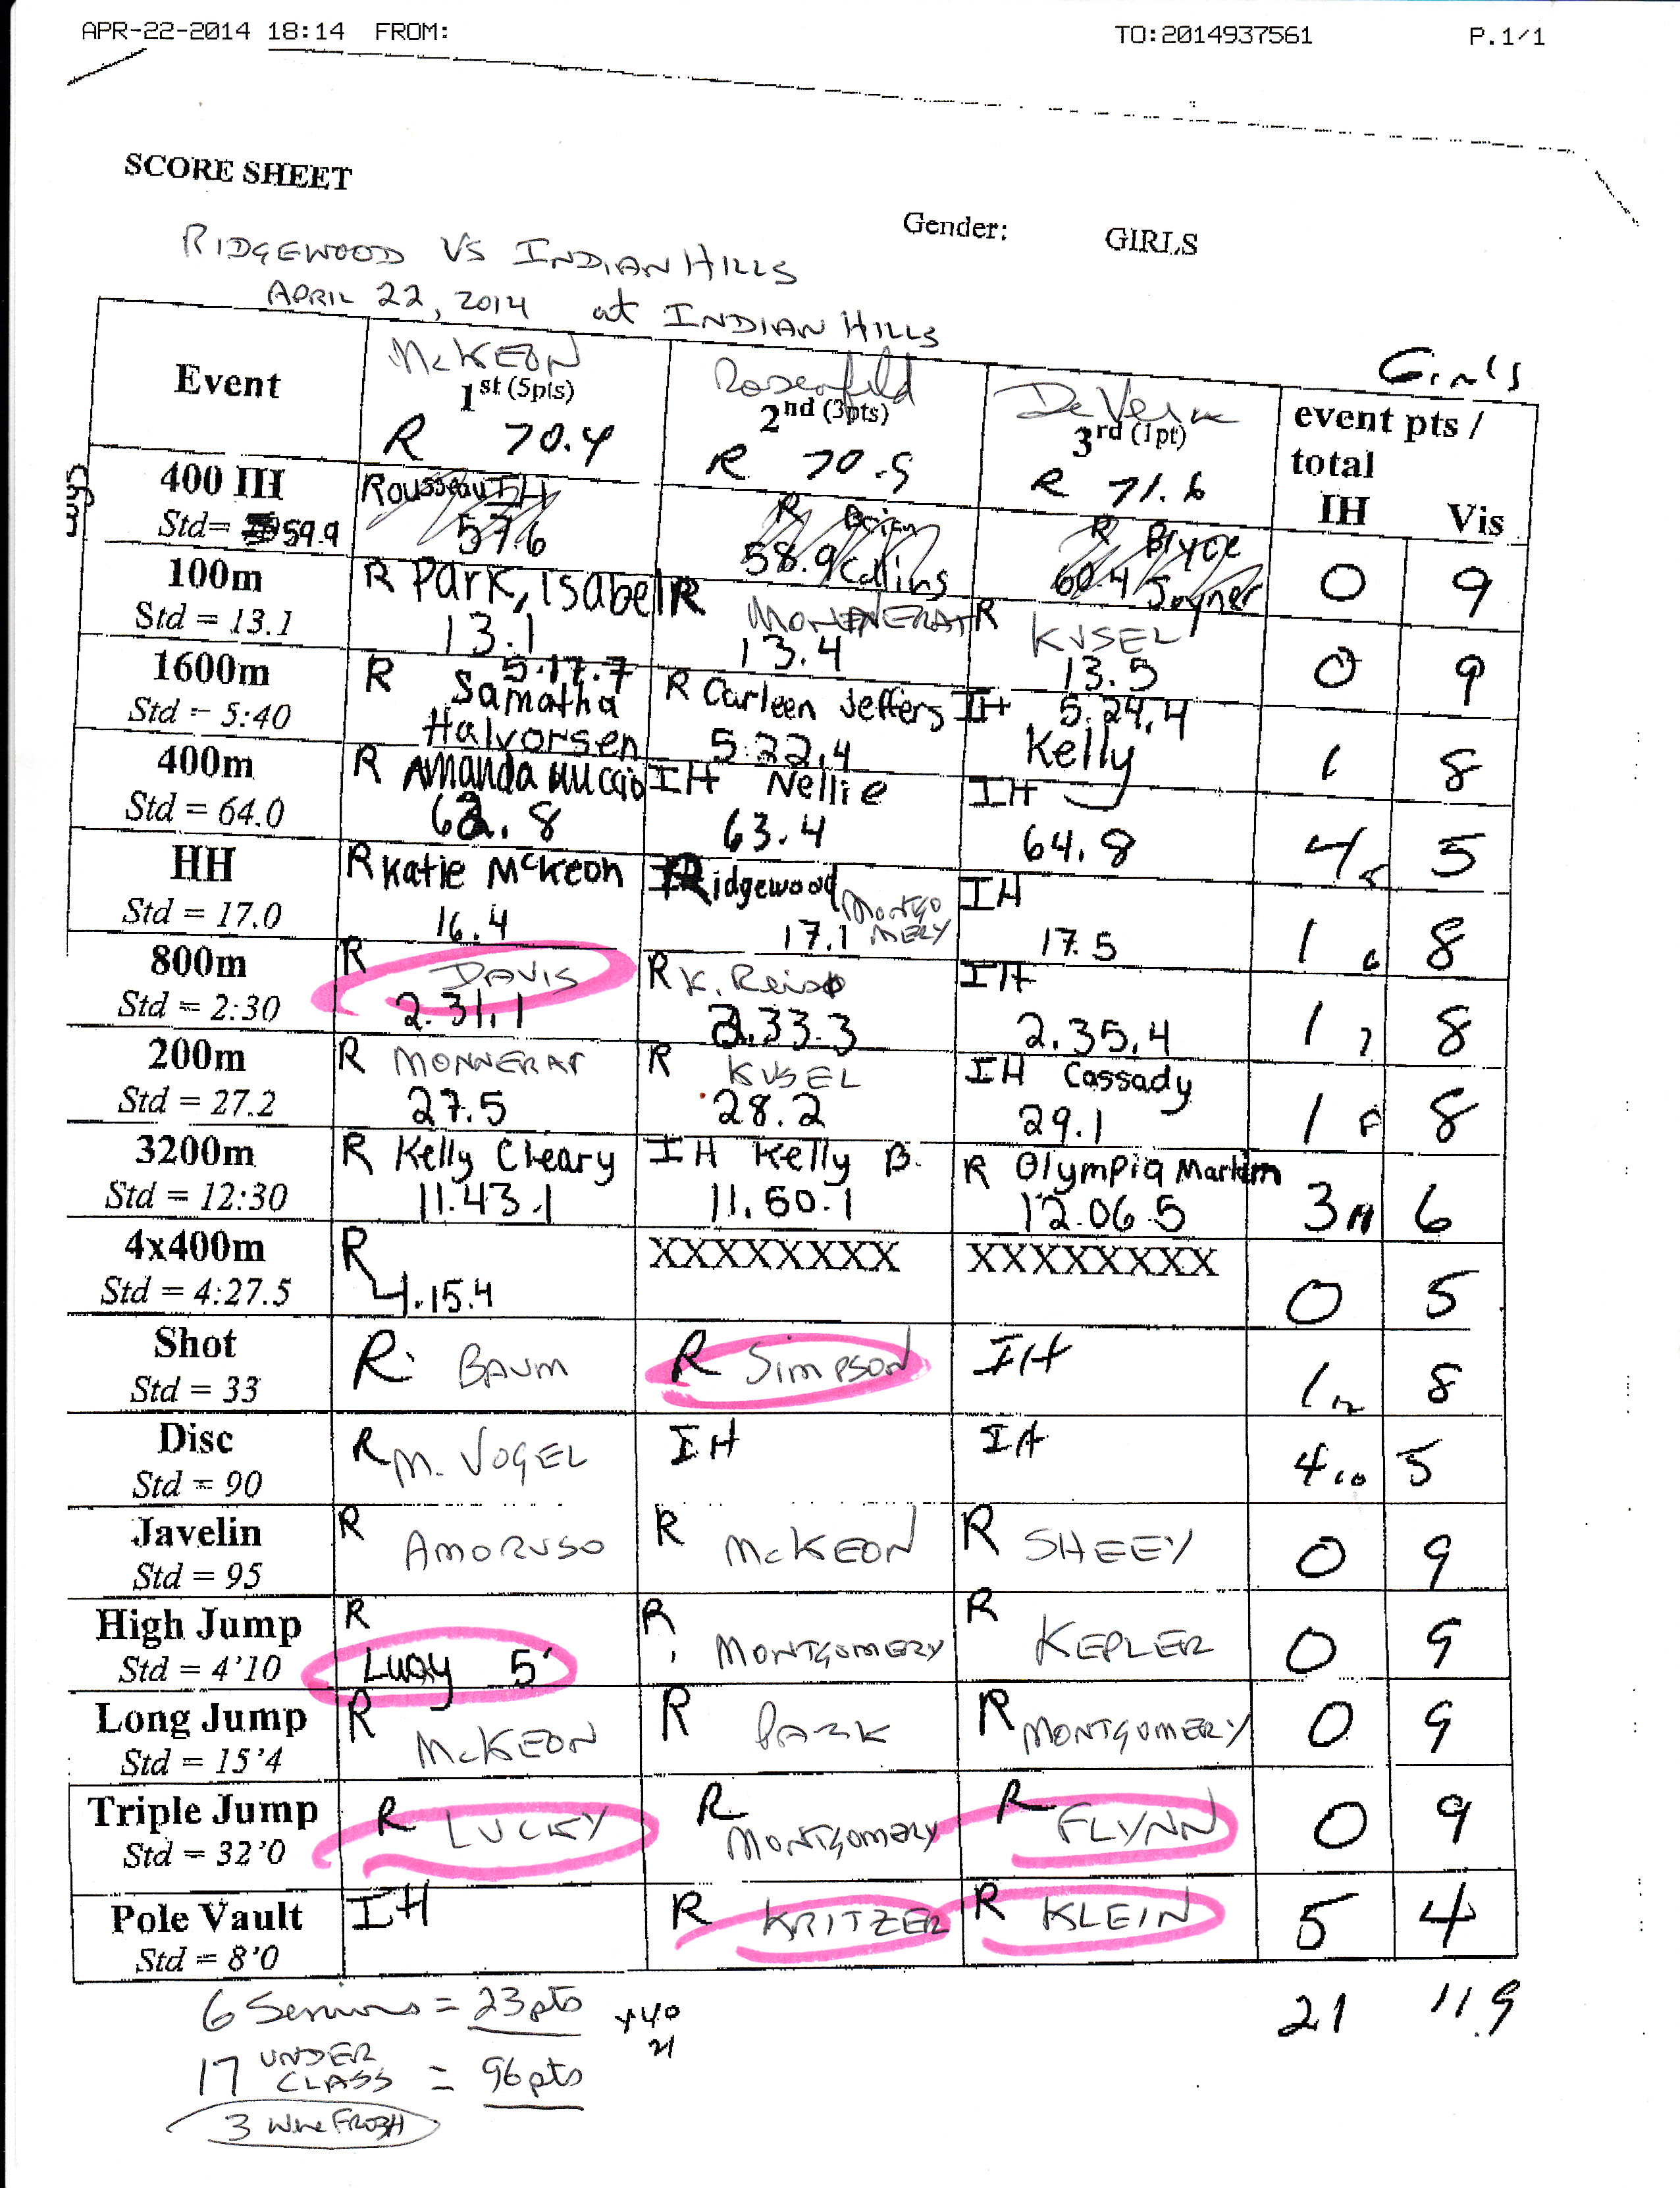 APR-22-2014 18:14 FROM: TO:2014937561 P.1/1
SCORE SHEET
Gender: GIRLS
RIDGEWOOD VS INDIAN HILLS
APRIL 22, 2014 at INDIAN HILLS
Girls
Event McKEON 1st (5pts) R 70.4 Rosenfeld 2nd (3pts) R 70.5 3rd (1pt) R 71.6 event pts / total IH Vis
400 IH Std= 59.9 Rousseau IH 57.6 R Brian Collins 58.9 R Bryce Joyner 60.4 0 9
100m Std = 13.1 R Park, Isabel 13.1 R MONNERAT 13.4 R KUSEL 13.5 0 9
1600m Std = 5:40 R 5.17.7 Samatha Halvorsen R Carleen Jeffers 5.22.4 IH 5.24.4 Kelly 1 8
400m Std = 64.0 R Amanda 62.8 IH Nellie 63.4 IH 64.8 4 5
HH Std = 17.0 R Katie McKeon 16.4 Ridgewood MONTGOMERY 17.1 IH 17.5 1 8
800m Std = 2:30 R DAVIS 2.31.1 R K. 2.33.3 IH 2.35.4 1 8
200m Std = 27.2 R MONNERAT 27.5 R KUSEL 28.2 IH Cassady 29.1 1 8
3200m Std = 12:30 R Kelly Cleary 11.43.1 IH Kelly B. 11.50.1 R Olympia Martin 12.06.5 3 6
4x400m Std = 4:27.5 R 4.15.4 XXXXXXXX XXXXXXXX 0 5
Shot Std = 33 R BAUM R SIMPSON IH 1 8
Disc Std = 90 R M. VOGEL IH IH 4 5
Javelin Std = 95 R AMORUSO R McKEON R SHEEY 0 9
High Jump Std = 4'10 R Lucy 5' R MONTGOMERY R KEPLER 0 9
Long Jump Std = 15'4 R McKEON R PARK R MONTGOMERY 0 9
Triple Jump Std = 32'0 R LUCKY R MONTGOMERY R FLYNN 0 9
Pole Vault Std = 8'0 IH R KRITZER R KLEIN 5 4
21 119
6 Seniors = 23pts
17 UNDER CLASS = 96pts
3 were FROSH